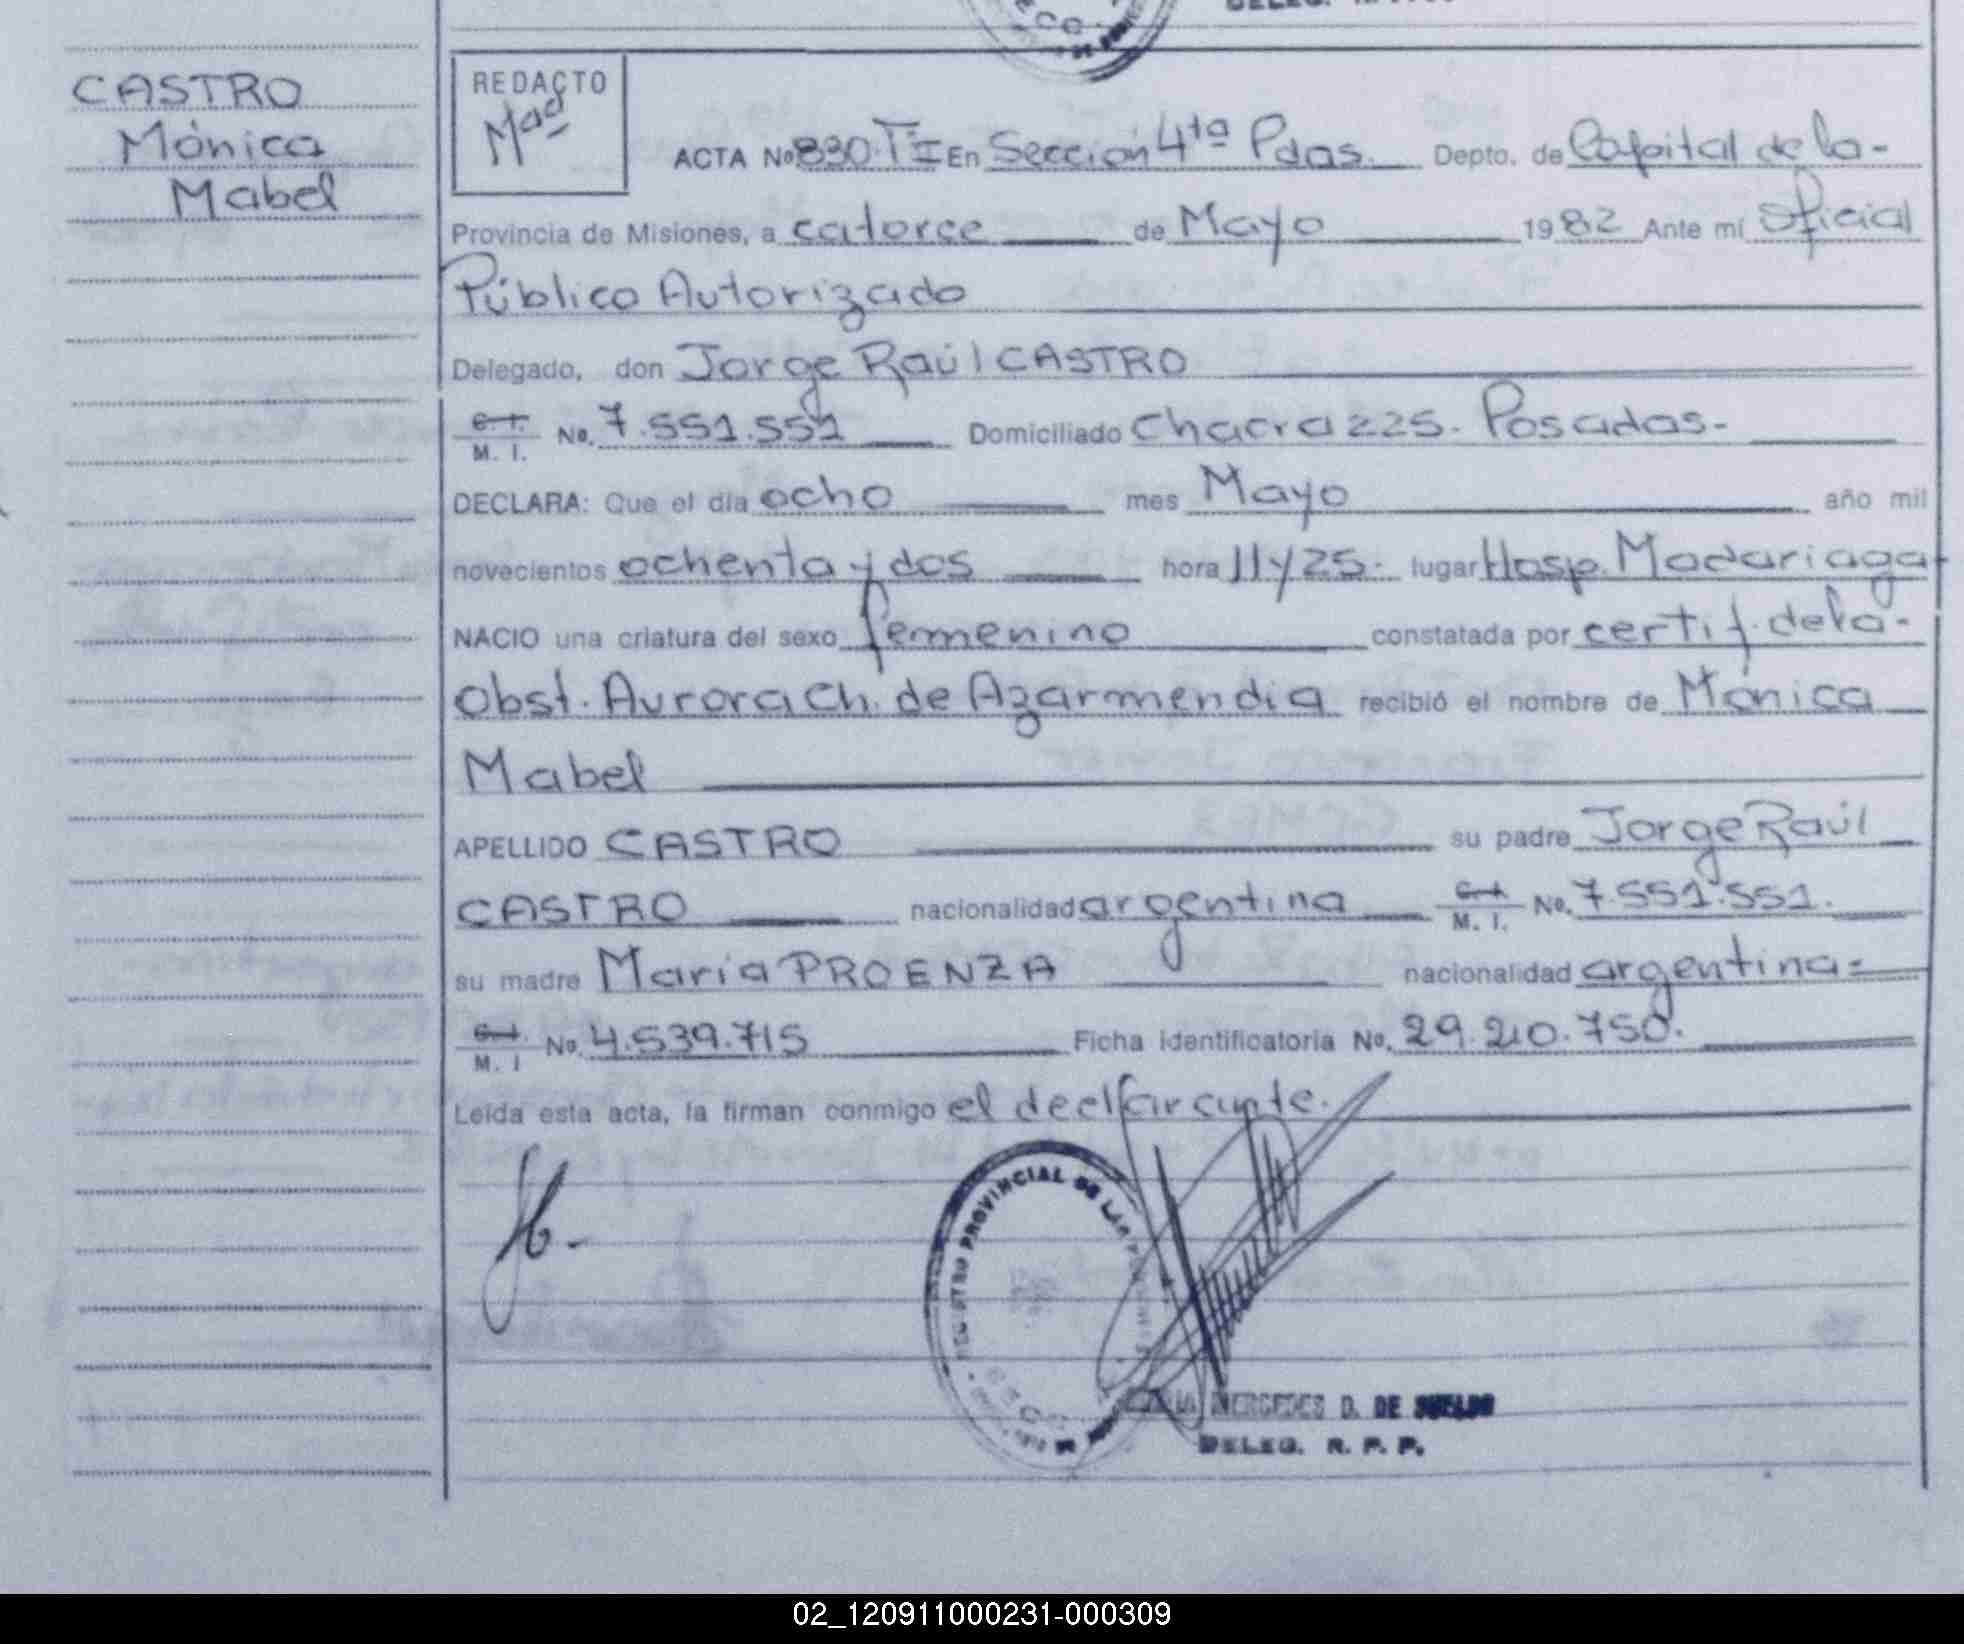 CASTRO
Mónica
Mabel
REDACTO
ACTA No 830. TºI En Sección 4ta Pdas. Depto. de Capital de la-
Provincia de Misiones, a catorce de Mayo 1982 Ante mí Oficial
Público Autorizado
Delegado, don Jorge Raúl CASTRO
C. I.
M. I. No. 7.551.551 Domiciliado Chacra 225. Posadas-
DECLARA: Que el día ocho mes Mayo año mil
novecientos ochenta y dos hora 11 y 25. lugar Hosp. Madariaga
NACIO una criatura del sexo femenino constatada por certif. de la-
Obst. Aurora Ch. de Azarmendia recibió el nombre de Mónica
Mabel
APELLIDO CASTRO su padre Jorge Raúl
CASTRO nacionalidad argentina C. I. M. I. No. 7.551.551.
su madre María PROENZA nacionalidad argentina=
C. I.
M. I No. 4.539.715 Ficha identificatoria No. 29.210.750.
Leída esta acta, la firman conmigo el declarante.
REGISTRO PROVINCIAL DE LAS PERSONAS
MERCEDES D. DE SUELDO
DELEG. R. P. P.
02_120911000231-000309